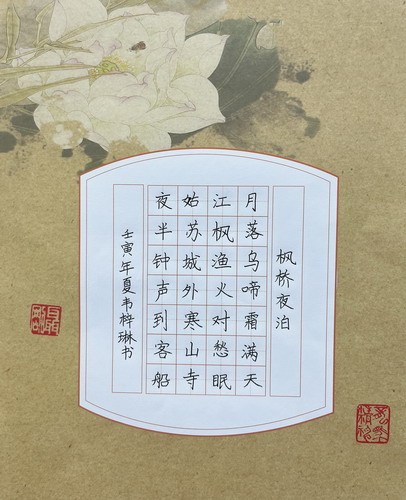 枫桥夜泊
月落乌啼霜满天
江枫渔火对愁眠
姑苏城外寒山寺
夜半钟声到客船
壬寅年夏韦梓琳书